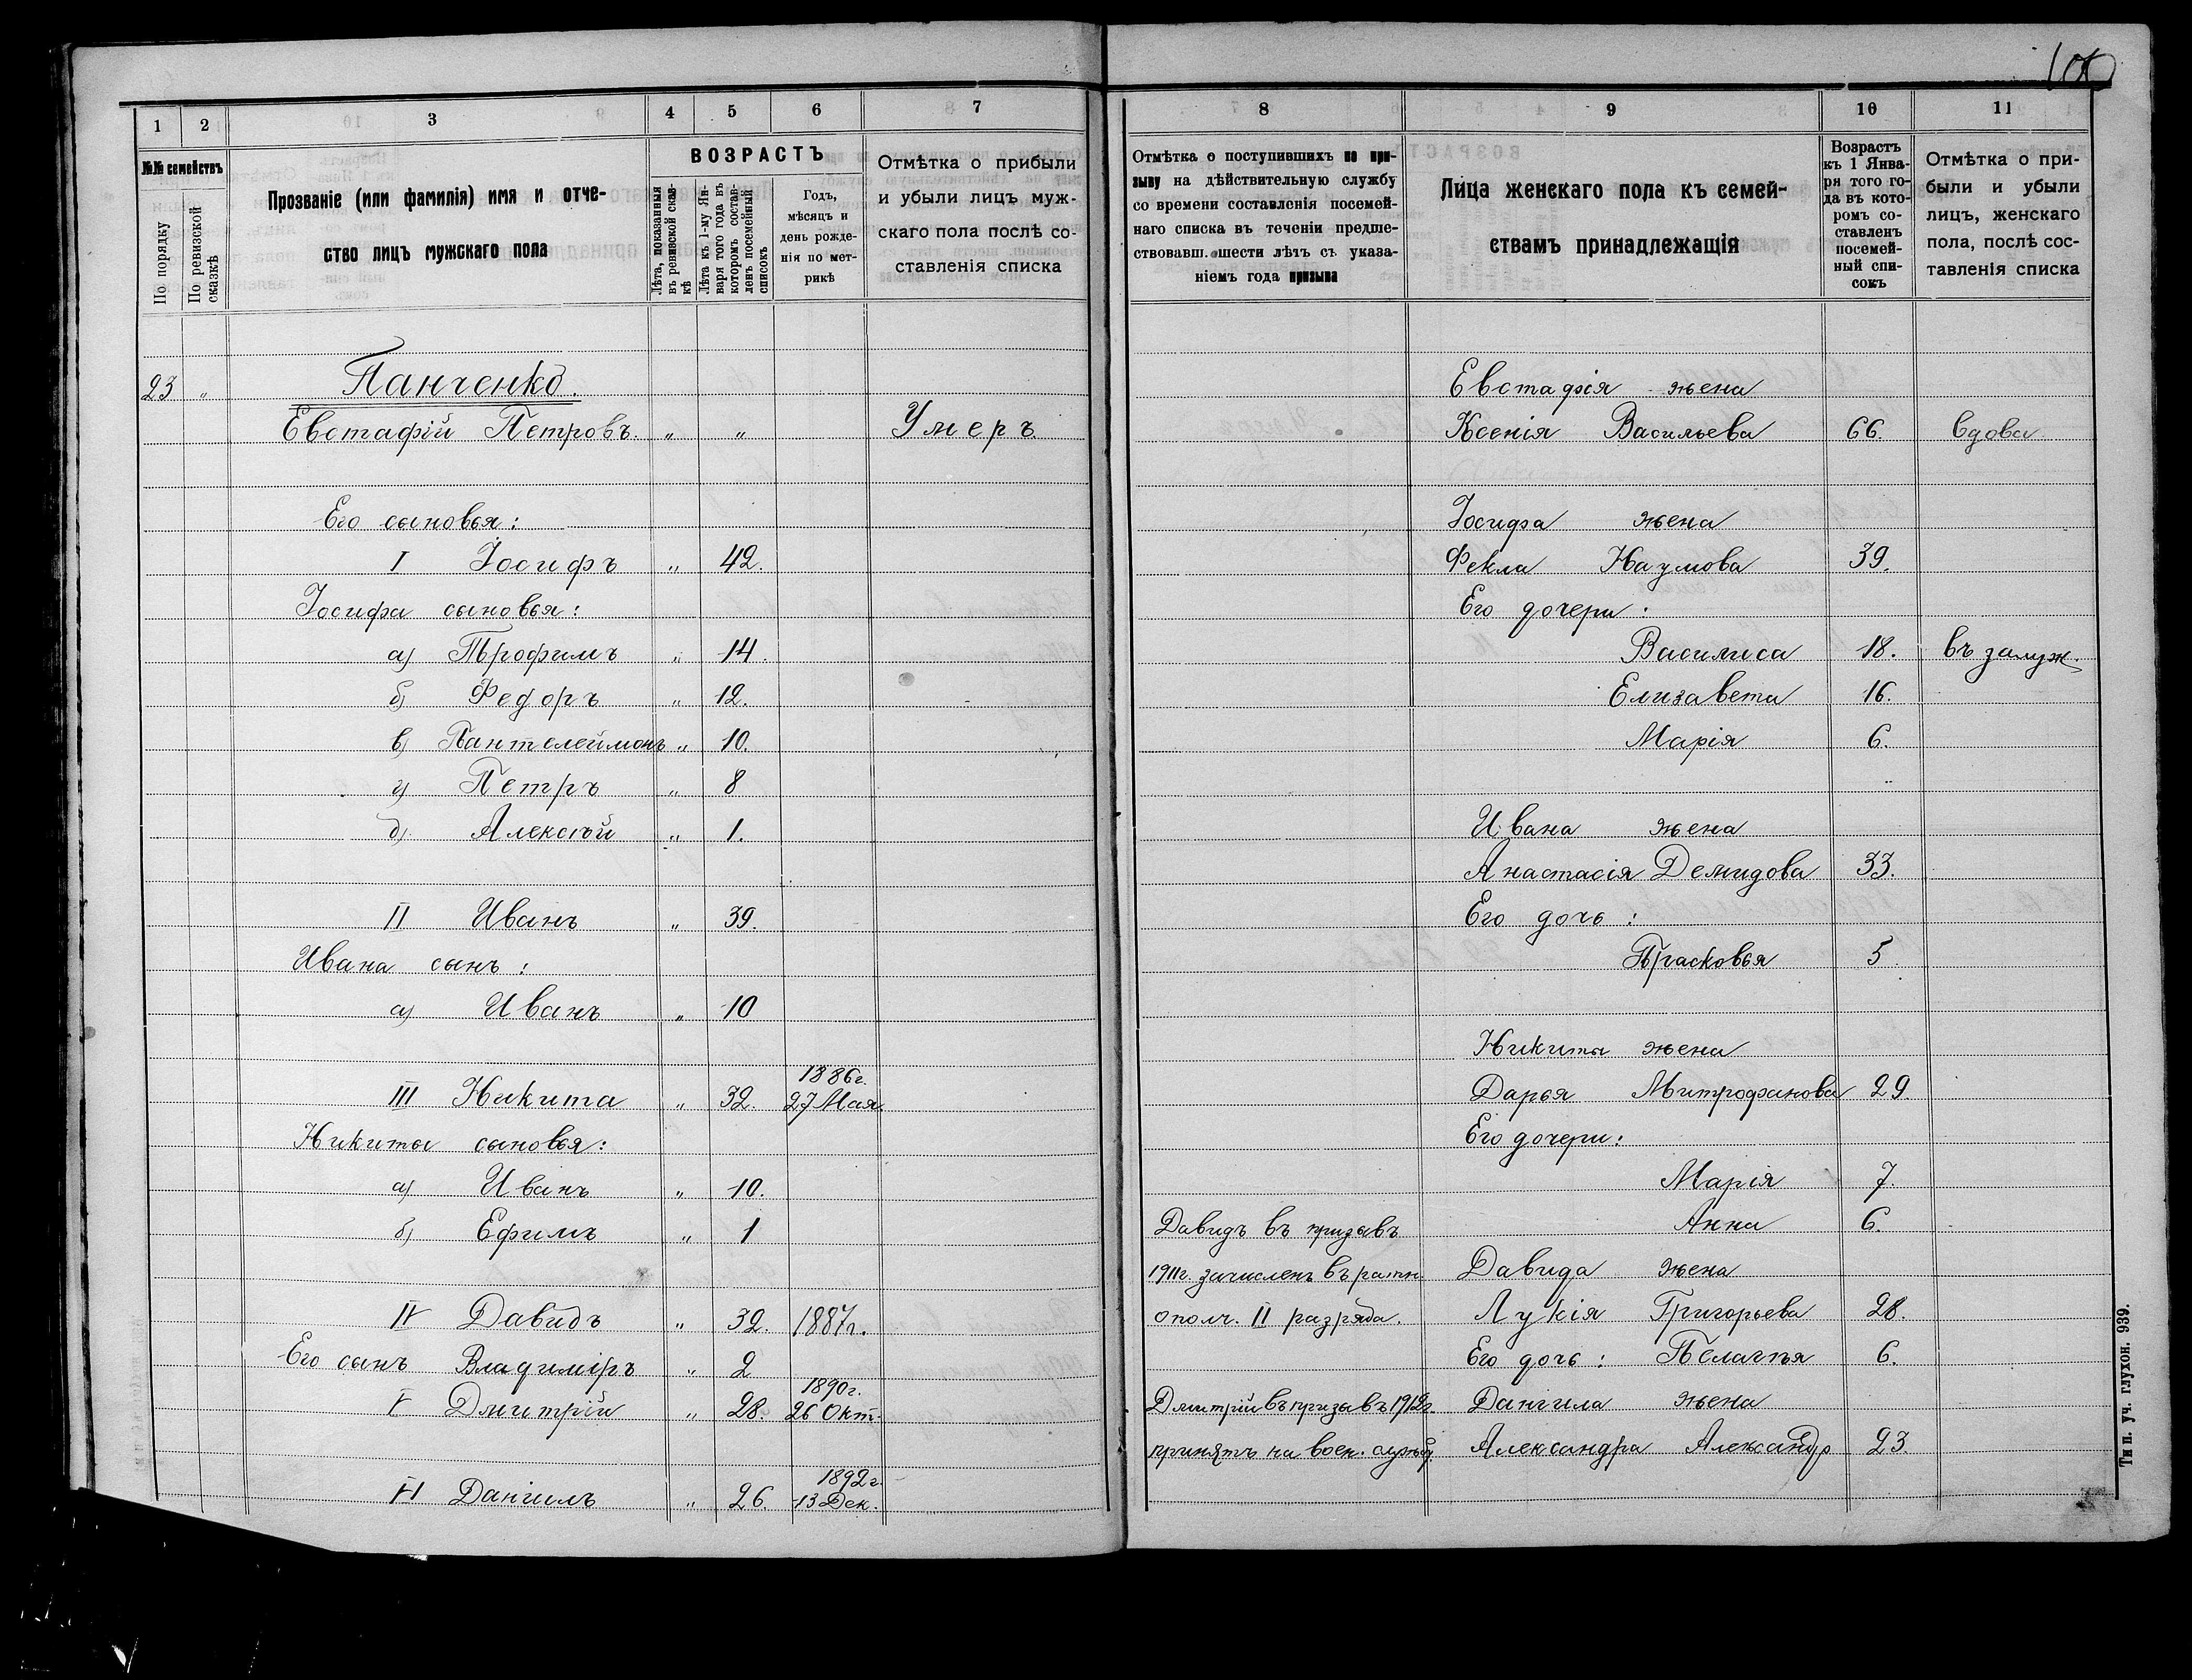 1 2 3 4 5 6 7
№№ семействъ
По порядку
По ревизской сказкѣ
Прозваніе (или фамилія) имя и отче-
ство лицъ мужскаго пола
ВОЗРАСТЪ
Лѣта, показанныя
въ ревизской сказ-
кѣ
Лѣта къ 1-му Ян-
варя того года въ
которомъ состав-
ленъ посемейный
списокъ
Годъ,
мѣсяцъ и
день рожде-
нія по мет-
рикѣ
Отмѣтка о прибыли
и убыли лицъ муж-
скаго пола послѣ со-
ставленія списка
23 " Панченко.
Евстафій Петровъ. " " Умеръ.
Его сыновья:
I Іосифъ " 42.
Іосифа сыновья:
а) Трофимъ " 14.
б) Федоръ " 12.
в) Пантелеймонъ " 10.
г) Петръ " 8
д) Алексѣй " 1.
II Иванъ " 39.
Ивана сынъ:
а) Иванъ " 10
1886г.
III Никита " 32 27 Мая
Никиты сыновья:
а) Иванъ " 10.
б) Ефимъ " 1
IV Давидъ " 32. 1887г.
Его сынъ Владиміръ " 2
1890г.
V Дмитрій " 28. 26 Окт.
1892г.
VI Даніилъ " 26. 13 Дек.
8 9 10 11
Отмѣтка о поступившихъ по при-
зыву на дѣйствительную службу
со времени составленія посемей-
наго списка въ теченіи предше-
ствовавш. шести лѣтъ съ указа-
ніемъ года призыва
Лица женскаго пола къ семей-
ствамъ принадлежащія
Возрастъ
къ 1 Янва-
ря того го-
да въ кото-
ромъ со-
ставленъ
посемей-
ный спи-
сокъ
Отмѣтка о при-
были и убыли
лицъ, женскаго
пола, послѣ сос-
тавленія списка
Евстафія жена
Ксенія Васильева 66. вдова.
Іосифа жена
Фекла Наумова 39.
Его дочери:
Василиса 18. въ замуж.
Елизавета 16.
Марія 6.
Ивана жена
Анастасія Демидова 33.
Его дочь:
Прасковья 5
Никиты жена
Дарья Митрофанова 29.
Его дочери:
Марія 7.
Давидъ въ призывъ Анна 6.
1911г. зачисленъ въ ратн. Давида жена
ополч. II разряда. Лукія Григорьева 28.
Его дочь: Пелагѣя 6.
Дмитрій въ призывъ 1912г. Даніила жена
принятъ на воен. службу Александра Александр 23.
Тип. уч. глухон. 939.